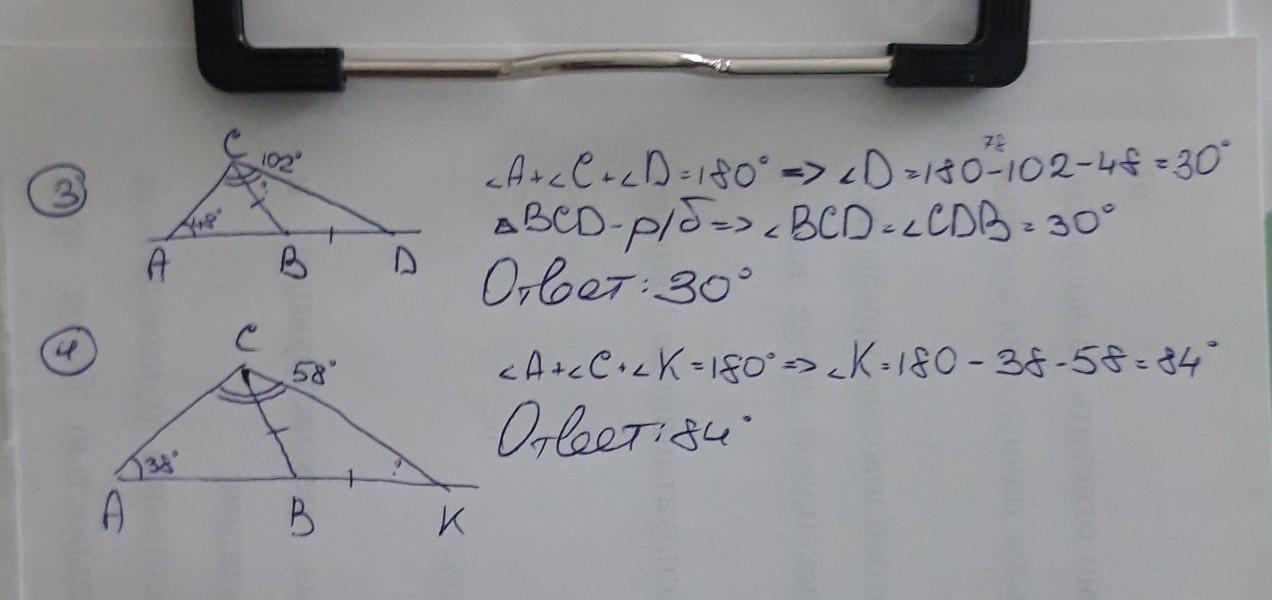 3
C
102°
?
48°
A B D
78
∠A+∠C+∠D=180° => ∠D=180-102-48=30°
△BCD-р/б=>∠BCD=∠CDB=30°
Ответ: 30°
4
C
58°
38°
?
A B K
∠A+∠C+∠K=180°=>∠K=180-38-58=84°
Ответ: 84°